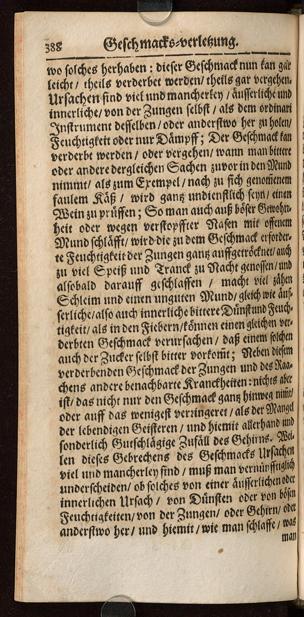 388 Geschmacks-verletzung.
wo solches herhaben: dieser Geschmack nun kan gar
leicht / theils verderbet werden / theils gar vergehen.
Ursachen sind viel und mancherley / äusserliche und
innerliche / von der Zungen selbst / als dem ordinari
Instrument desselben / oder anderstwo her zu holen /
Feuchtigkeit oder nur Dämpff; Der Geschmack kan
verderbt werden / oder vergehen / wann man bittere
oder andere dergleichen Sachen zuvor in den Mund
nimmt / als zum Exempel / nach zu sich genommenem
faulem Käß / wird ganz undienstlich seyn / einen
Wein zu prüffen; So man auch auß böser Gewohn-
heit oder wegen verstopffter Nasen mit offenem
Mund schläfft / wird die zu dem Geschmack erforder-
te Feuchtigkeit der Zungen gantz auffgetröcknet / auch
zu viel Speiß und Tranck zu Nacht genossen / und
alsobald darauff geschlaffen / macht viel zähen
Schleim und einen unguten Mund / gleich wie äus-
serliche / also auch innerliche bittere Dünst und Feuch-
tigkeit / als in den Fiebern / können einen gleichen ver-
derbten Geschmack verursachen / daß einem solchen
auch der Zucker selbst bitter vorkom̃t; Neben diesem
verderbenden Geschmack der Zungen und des Raa-
chens andere benachbarte Kranckheiten: nichts aber
ist / das nicht nur den Geschmack gantz hinweg nim̃t /
oder auff das wenigst verringeret / als der Mangel
der lebendigen Geisteren / und hiemit allerhand und
sonderlich Gutschlägige Zufäll des Gehirns. Wei-
len dieses Gebrechens des Geschmacks Ursachen
viel und mancherley sind / muß man vernünfftiglich
underscheiden / ob solches von einer äusserlichen oder
innerlichen Ursach / von Dünsten oder von bösen
Feuchtigkeiten / von der Zungen / oder Gehirn / oder
anderstwo her / und hiemit / wie man schlaffe / was
man